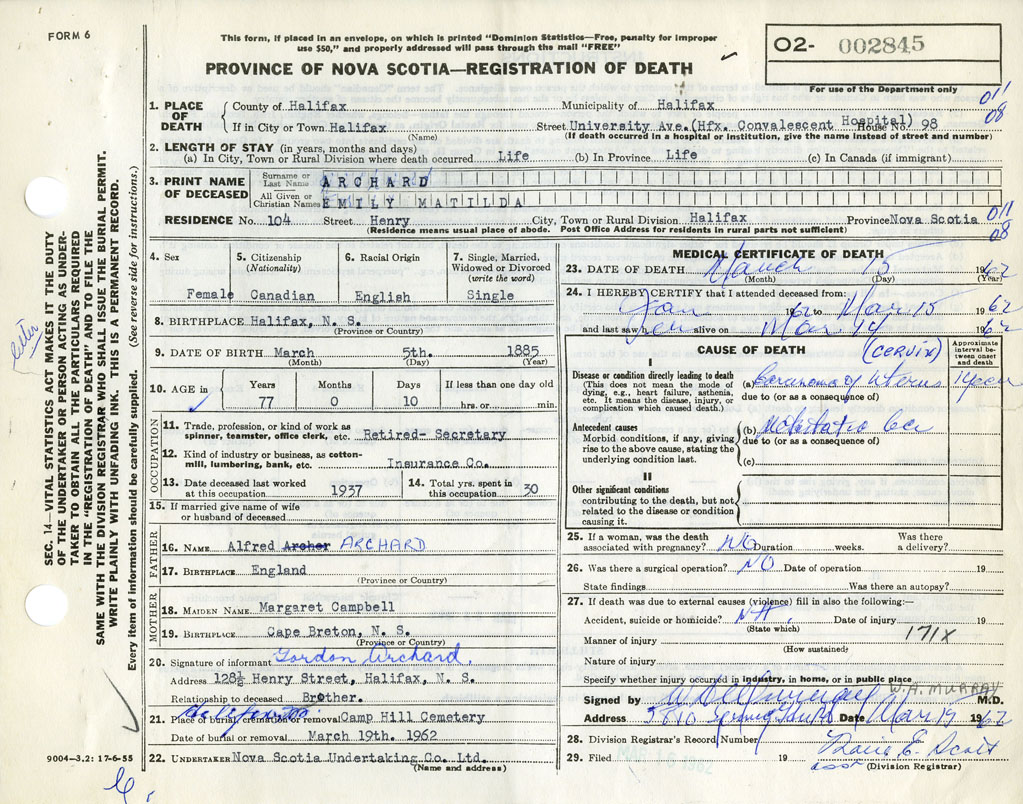 FORM 6
This form, if placed in an envelope, on which is printed "Dominion Statistics—Free, penalty for improper
use $50," and properly addressed will pass through the mail "FREE"
PROVINCE OF NOVA SCOTIA—REGISTRATION OF DEATH
02- 002845
For use of the Department only
1. PLACE OF DEATH { County of Halifax Municipality of Halifax 011
If in City or Town Halifax Street University Ave. (Hfx. Convalescent Hospital) House No. 98 08
(Name) (If death occurred in a hospital or institution, give the name instead of street and number)
2. LENGTH OF STAY (in years, months and days)
(a) In City, Town or Rural Division where death occurred Life (b) In Province Life (c) In Canada (if immigrant)
3. PRINT NAME OF DECEASED { Surname or Last Name ARCHARD
All Given or Christian Names EMILY MATILDA
RESIDENCE No. 104 Street Henry City, Town or Rural Division Halifax Province Nova Scotia 011
(Residence means usual place of abode. Post Office Address for residents in rural parts not sufficient) 08
4. Sex Female
5. Citizenship (Nationality) Canadian
6. Racial Origin English
7. Single, Married, Widowed or Divorced (write the word) Single
8. BIRTHPLACE Halifax, N. S.
(Province or Country)
9. DATE OF BIRTH March 5th. 1885
(Month) (Day) (Year)
10. AGE in Years Months Days If less than one day old
77 0 10 hrs. or min.
OCCUPATION
11. Trade, profession, or kind of work as spinner, teamster, office clerk, etc. Retired- Secretary
12. Kind of industry or business, as cotton-mill, lumbering, bank, etc. Insurance Co.
13. Date deceased last worked at this occupation 1937
14. Total yrs. spent in this occupation 30
15. If married give name of wife or husband of deceased
FATHER
16. NAME Alfred Archer ARCHARD
17. BIRTHPLACE England
(Province or Country)
MOTHER
18. MAIDEN NAME Margaret Campbell
19. BIRTHPLACE Cape Breton, N. S.
(Province or Country)
20. Signature of informant Gordon Archard.
Address 128½ Henry Street, Halifax, N. S.
Relationship to deceased Brother.
21. Place of burial, cremation or removal Camp Hill Cemetery
Date of burial or removal March 19th. 1962
22. UNDERTAKER Nova Scotia Undertaking Co. Ltd.
(Name and address)
MEDICAL CERTIFICATE OF DEATH
23. DATE OF DEATH March 15 1962
(Month) (Day) (Year)
24. I HEREBY CERTIFY that I attended deceased from:
Jan 1962 to Mar 15 1962
and last saw her alive on Mar 14 1962
CAUSE OF DEATH (CERVIX) Approximate interval between onset and death
I
Disease or condition directly leading to death
(This does not mean the mode of dying, e.g., heart failure, asthenia, etc. It means the disease, injury, or complication which caused death.)
(a) Carcinoma of Uterus 1 year
due to (or as a consequence of)
Antecedent causes
Morbid conditions, if any, giving rise to the above cause, stating the underlying condition last.
(b)
due to (or as a consequence of)
(c)
II
Other significant conditions
contributing to the death, but not related to the disease or condition causing it.
25. If a woman, was the death associated with pregnancy? NO Duration weeks. Was there a delivery?
26. Was there a surgical operation? NO Date of operation 19
State findings Was there an autopsy?
27. If death was due to external causes (violence) fill in also the following:—
Accident, suicide or homicide? Date of injury 19
(State which)
Manner of injury 171X
(How sustained)
Nature of injury
Specify whether injury occurred in industry, in home, or in public place
Signed by W. A. MURRAY M.D.
Address 5810 Spring Date Mar 19 1962
28. Division Registrar's Record Number
29. Filed MAR 16 1962 19 E. Scott
(Division Registrar)
SEC. 14—VITAL STATISTICS ACT MAKES IT THE DUTY
OF THE UNDERTAKER OR PERSON ACTING AS UNDER-
TAKER TO OBTAIN ALL THE PARTICULARS REQUIRED
IN THE "REGISTRATION OF DEATH" AND TO FILE THE
SAME WITH THE DIVISION REGISTRAR WHO SHALL ISSUE THE BURIAL PERMIT.
WRITE PLAINLY WITH UNFADING INK. THIS IS A PERMANENT RECORD.
Every item of information should be carefully supplied. (See reverse side for instructions.)
letter
9004-3.2: 17-6-55